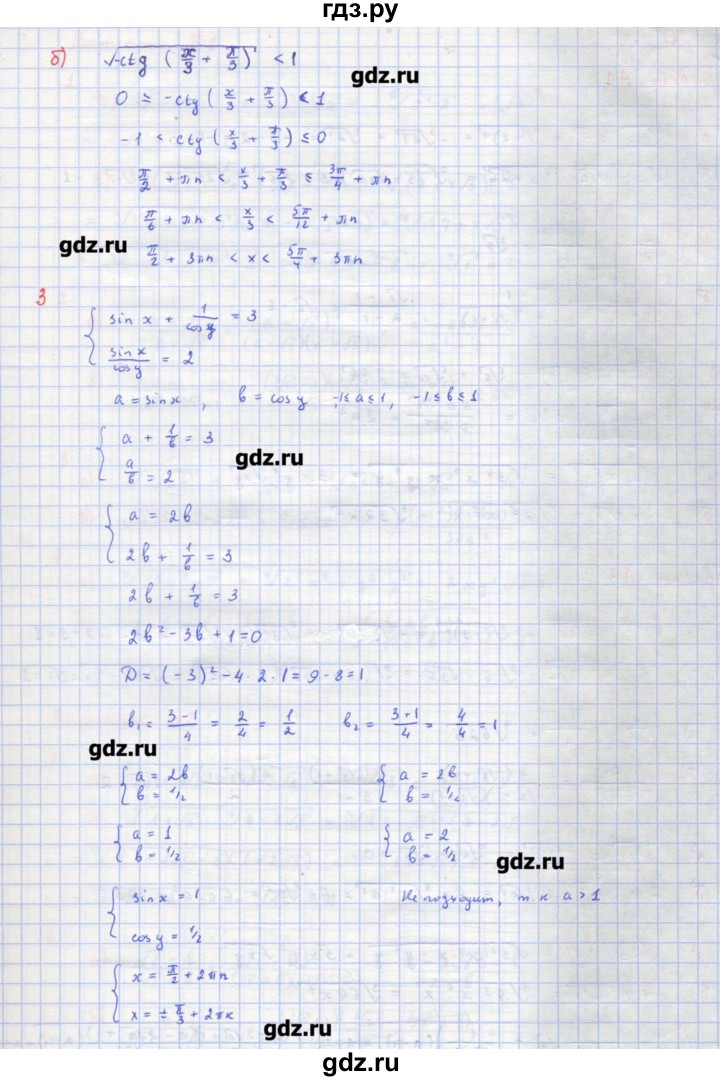 гдз.ру
б) √-ctg (x/3 + π/3) < 1
gdz.ru
0 ≤ -ctg (x/3 + π/3) < 1
-1 < ctg (x/3 + π/3) ≤ 0
π/2 + πn < x/3 + π/3 ≤ 3π/4 + πn
π/6 + πn < x/3 < 5π/12 + πn
gdz.ru
π/2 + 3πn < x < 5π/4 + 3πn
3
{ sin x + 1/cos y = 3
sin x/cos y = 2
a = sin x, b = cos y -1 ≤ a ≤ 1, -1 ≤ b ≤ 1
{ a + 1/b = 3
gdz.ru
a/b = 2
{ a = 2b
2b + 1/b = 3
2b + 1/b = 3
2b² - 3b + 1 = 0
D = (-3)² - 4 · 2 · 1 = 9 - 8 = 1
b₁ = 3-1/4 = 2/4 = 1/2 b₂ = 3+1/4 = 4/4 = 1
gdz.ru
{ a = 2b { a = 2b
b = 1/2 b = 1/2
{ a = 1 { a = 2
b = 1/2 b = 1/2
gdz.ru
{ sin x = 1 Не подходит, т.к a > 1
cos y = 1/2
{ x = π/2 + 2πn
x = ± π/3 + 2πk
gdz.ru
gdz.ru